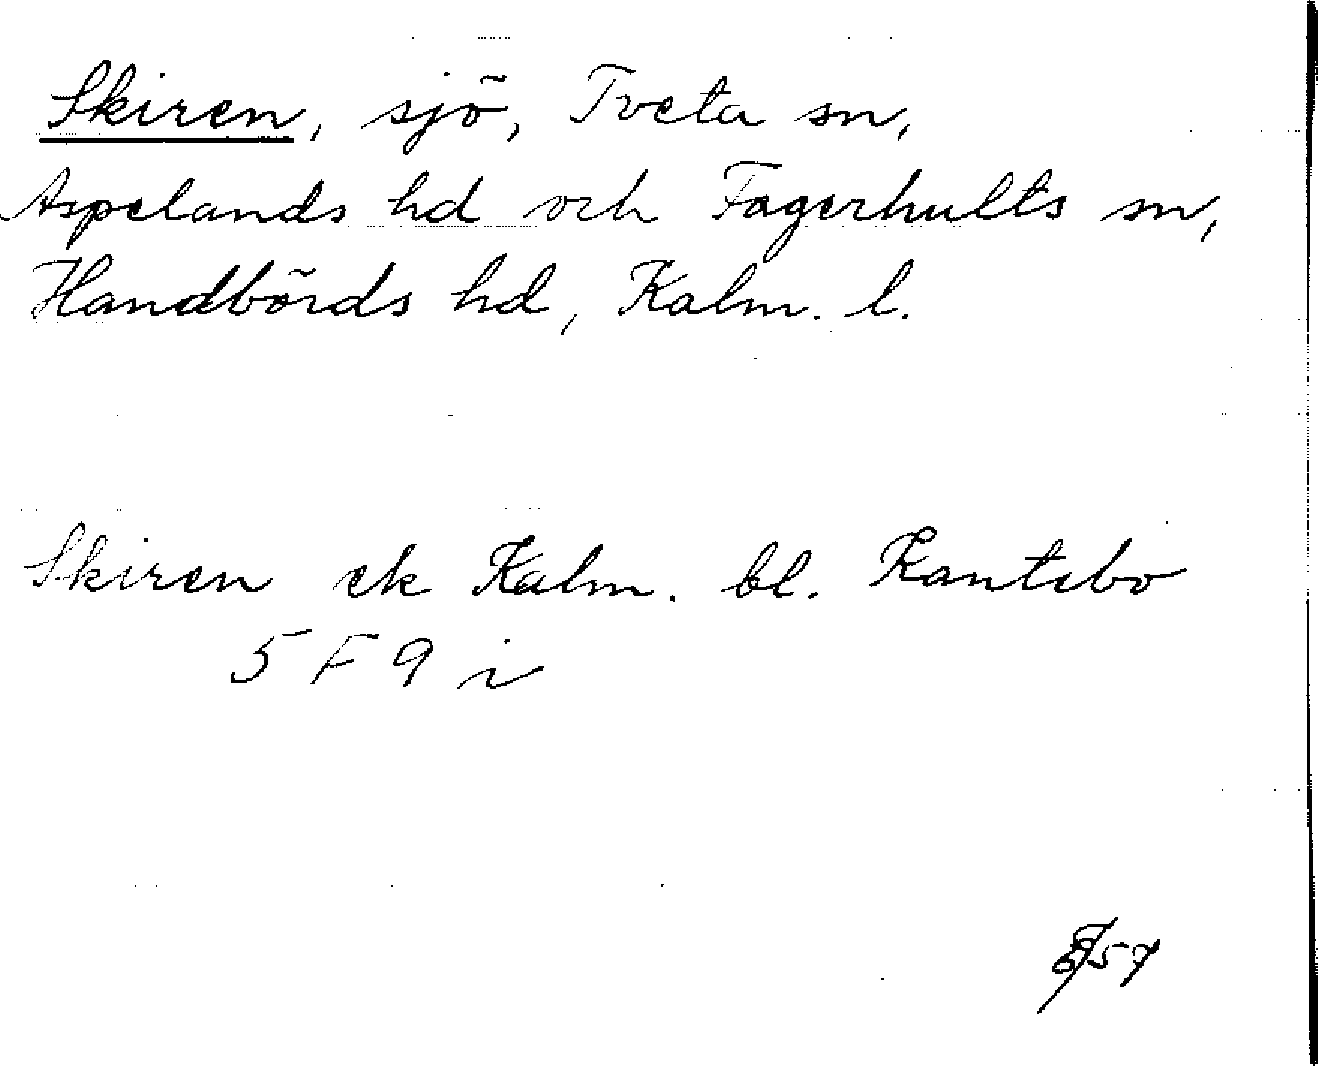 Skiren, sjö, Tveta sn,
Aspelands hd och Fagerhults sn,
Handbörds hd, Kalm. l.
Skiren ek Kalm. bl. Rantebo
5 F 9 i